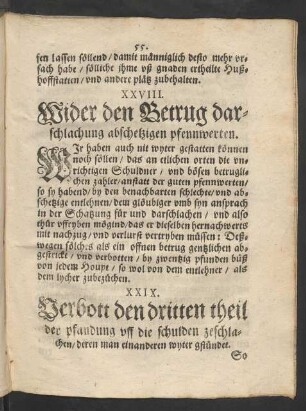 55.
sen lassen söllend / damit männiglich desto mehr vr-
sach habe / sölliche ihme vß gnaden ertheilte Huß-
hoffstatten / vnd andere plätz zubehalten.
XXVIII.
Wider den Betrug dar-
schlachung abschetzigen pfennwerten.
WIr haben auch nit wyter gestatten können
noch söllen / das an etlichen orten die vn-
richtigen Schuldner / vnd bösen betrugli-
chen zahler / anstatt der guten pfennwerten /
so sy habend / by den benachbarten schlechte / vnd ab-
schetzige entlehnen / dem gläubiger vmb syn ansprach
in der Schatzung für vnd darschlachen / vnd also
thür vfftryben mögind / das er dieselben hernachwerts
mit nachzug / vnd verlurst vertryben müssen: Deß-
wegen sölches als ein offnen betrug gentzlichen ab-
gestrickt / vnd verbotten / by zwentzig pfunden büß
von jedem Houpt / so wol von dem entlehner / als
dem lycher zubezüchen.
XXIX.
Verbott den dritten theil
der pfandung vff die schulden zeschla-
chen / deren man einanderen wyter gstündet.
So